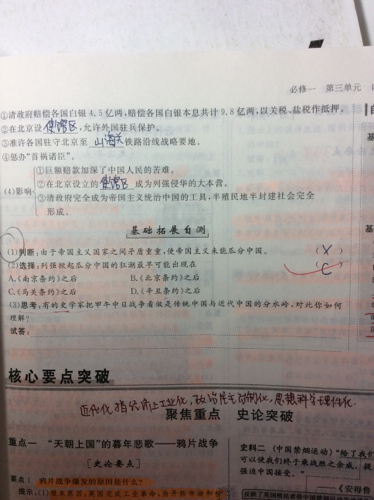 必修一 第三单元
①清政府赔偿各国白银4.5亿两,赔偿各国白银本息共计9.8亿两,以关税、盐税作抵押。
②在北京设使馆区,允许外国驻兵保护。
③准许各国驻守北京至山海关铁路沿线战略要地。
④惩办“首祸诸臣”。
①巨额赔款加深了中国人民的苦难。
(4)影响
②在北京设立的使馆区成为列强侵华的大本营。
③清政府完全成为帝国主义统治中国的工具,半殖民地半封建社会完全
形成。
基础拓展自测
(1)判断:由于帝国主义国家之间矛盾重重,使帝国主义未能瓜分中国。 (X)
(2)选择:列强掀起瓜分中国的狂潮最早可能出现在 (C)
A.《南京条约》之后 B.《北京条约》之后
C.《马关条约》之后 D.《辛丑条约》之后
(3)思考:有的史学家把甲午中日战争看做是传统中国与近代中国的分水岭。对比你如何
理解?
试答:
核心要点突破
近代化指经济上工业化,政治民主 制化,思想科学理性化.
聚焦重点 史论突破
重点一 “天朝上国”的暮年悲歌——鸦片战争
[史论要点]
要点1 鸦片战争爆发的原因是什么?
提示:
史料二 《中国禁烟运动》“给了我们
可以使我们终于乘战胜之余威,提
强迫中国接受。”